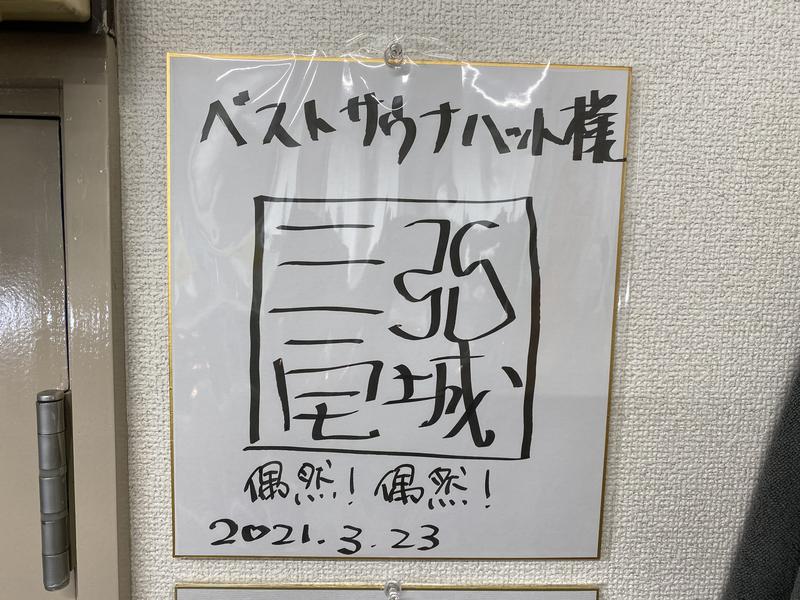 ベストサウナハット様
三宅
弘城
偶然！偶然！
2021.3.23